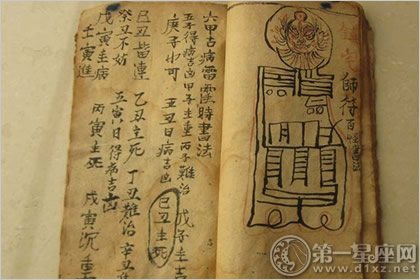 師符百
六甲古病雷霆時書法
得病吉凶甲子主重丙子難治 戊子主
庚子也可 五丑日病吉凶 己丑主死
己丑皆連 乙丑主死 丁丑難治辛丑
癸丑不妨 五寅日得病吉凶
戊寅主病 丙寅主死 戊寅沉重
壬寅進
第一星座网
www.d1xz.net